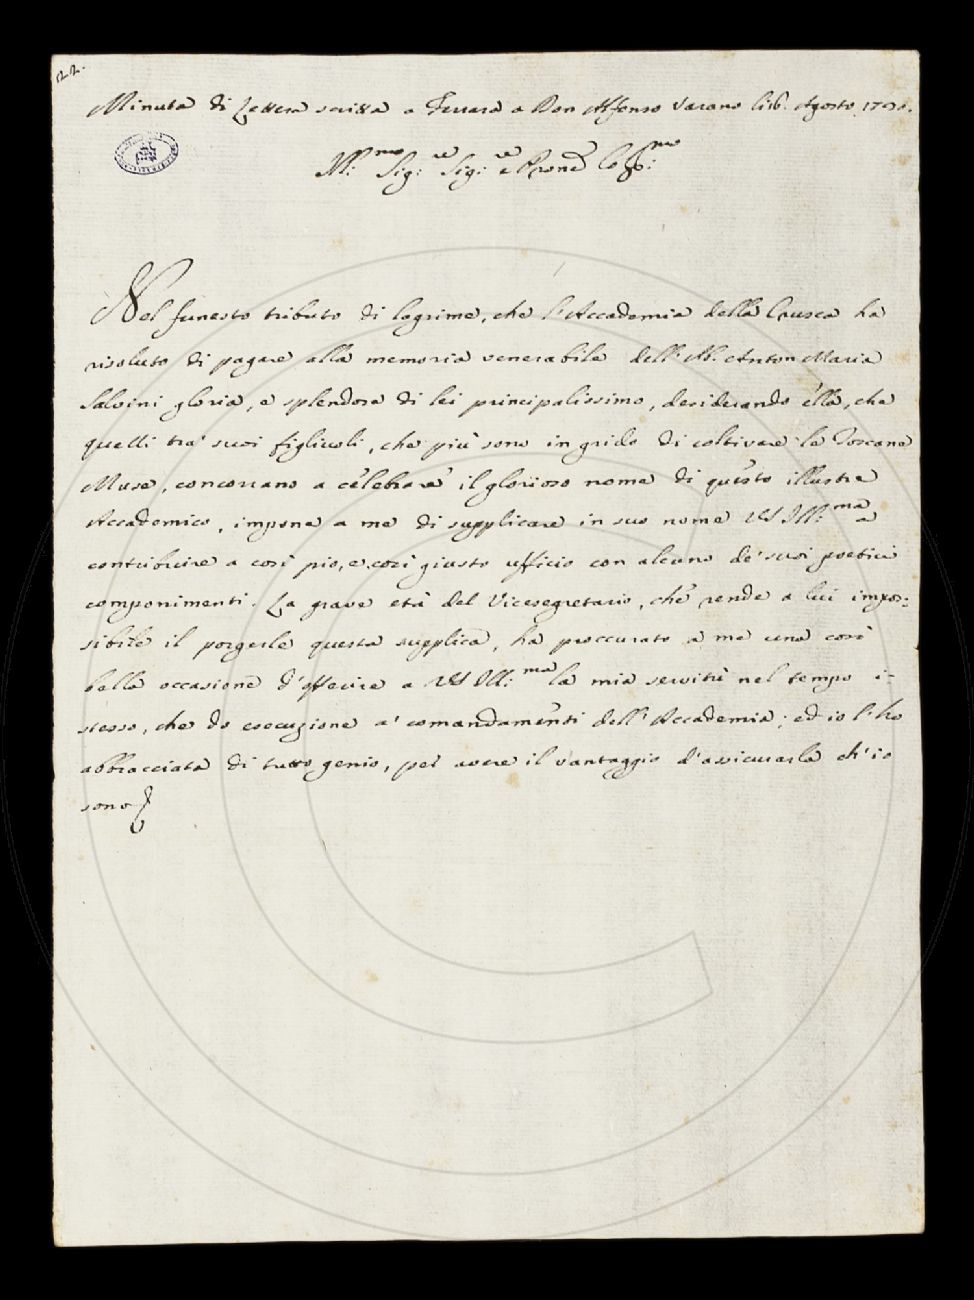 22.
Minuta di Lettera scritta a Ferrara a Don Alfonso Varano li Agosto
Ill:mo Sig:re Sig:re e Prone
Nel funesto tributo di lagrime, che l'Accademia della Crusca ha
risoluto di pagare alla memoria venerabile dell'Ab: Anton Maria
Salvini gloria, e splendore di lei principalissimo, desiderando ella, che
quelli tra' suoi figliuoli, che più sono in grido di coltivare le Toscane
Muse, concorrano a celebrare il glorioso nome di questo illustre
Accademico, impone a me di supplicare in suo nome VS Ill:ma a
contribuire a così pio, e così giusto uffizio con alcuno de' suoi poetici
componimenti. La grave età del Vicesegretario, che rende a lui impos:
sibile il porgerle questa supplica, ha proccurato a me una così
bella occasione d'offerire a VS Ill:ma la mia servitù nel tempo i-
stesso, che do esecuzione a' comandamenti dell'Accademia; ed io l'ho
abbracciata di tutto genio, per avere il vantaggio d'assicurarla ch'io
sono